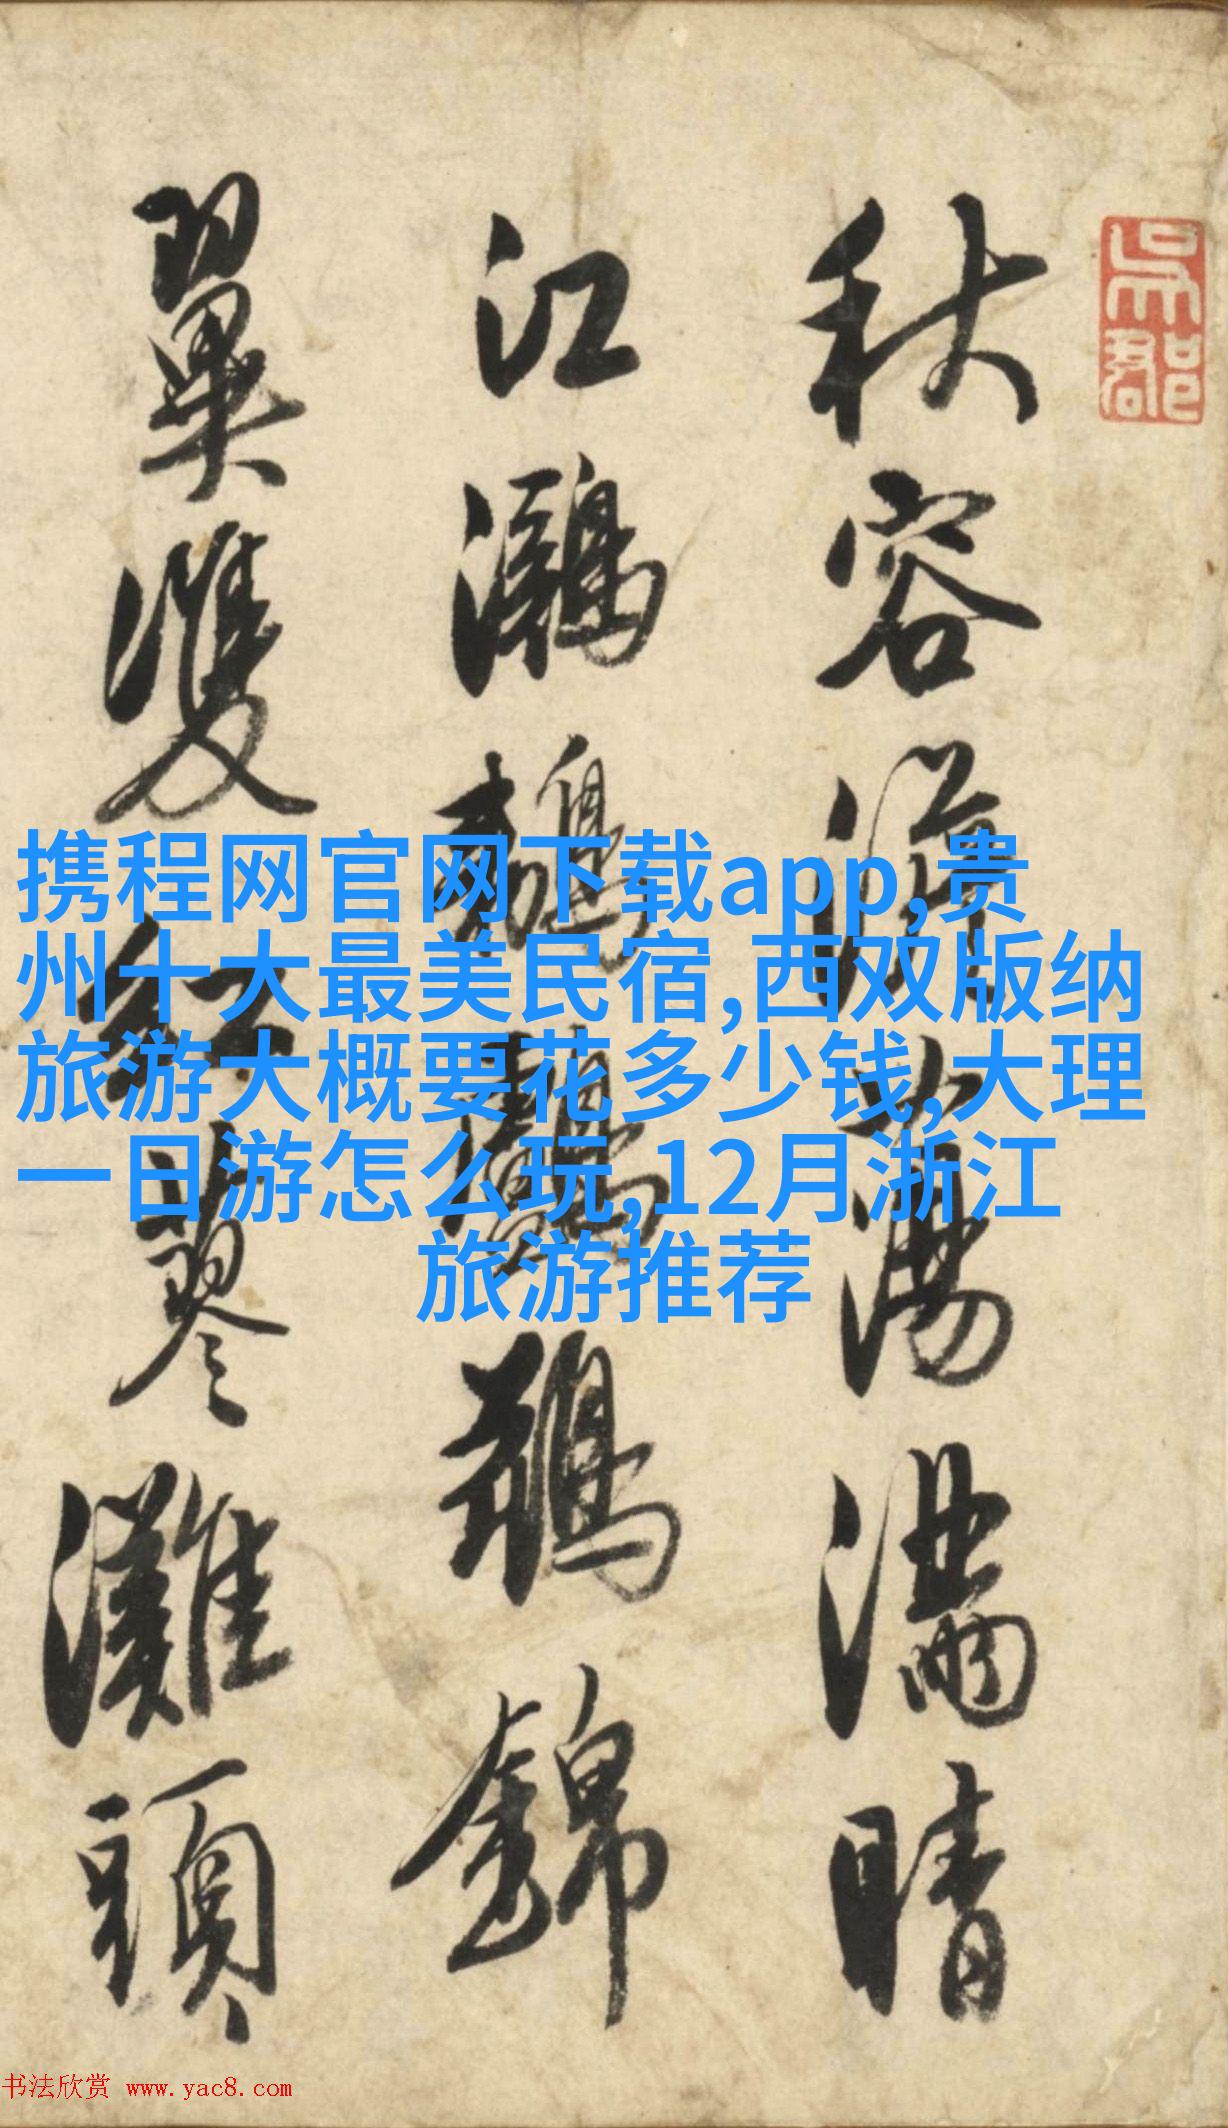 秋容淡蕩滿晴
江鸂鶒鵁鶄錦
翼雙紅蓼灘頭
吳郡
携程网官网下载app,贵
州十大最美民宿,西双版纳
旅游大概要花多少钱,大理
一日游怎么玩,12月浙江
旅游推荐
书法欣赏 www.yac8.com